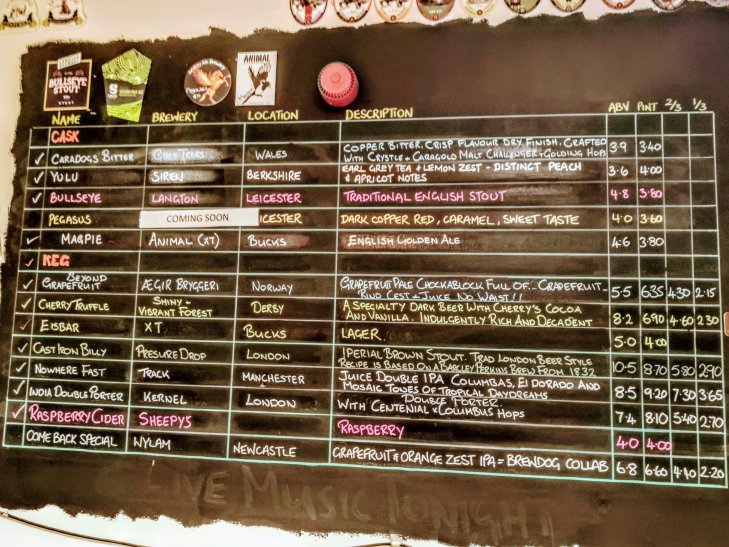 BULLSEYE STOUT
ANIMAL
NAME BREWERY LOCATION DESCRIPTION ABV PINT 2/3 1/3
CASK
✓ CARADOGS BITTER WALES COPPER BITTER. CRISP FLAVOUR DRY FINISH. CRAFTED WITH CRYSTLE + CARAGOLD MALT CHALLENGER + GOLDING HOPS 3.9 3.40
✓ YULU SIREN BERKSHIRE EARL GREY TEA & LEMON ZEST - DISTINCT PEACH & APRICOT NOTES 3.6 4.00
✓ BULLSEYE LANGTON LEICESTER TRADITIONAL ENGLISH STOUT 4.8 3.80
PEGASUS COMING SOON ICESTER DARK COPPER RED, CARAMEL, SWEET TASTE 4.0 3.60
✓ MAGPIE ANIMAL (XT) BUCKS ENGLISH GOLDEN ALE 4.6 3.80
✓ KEG
✓ BEYOND GRAPEFRUIT ÆGIR BRYGGERI NORWAY GRAPEFRUIT PALE CHOCKABLOCK FULL OF GRAPEFRUIT- RIND CEST + JUICE NO WAIST!! 5.5 635 430 2.15
✓ CHERRY TRUFFLE SHINY - VIBRANT FOREST DERBY A SPECIALTY DARK BEER WITH CHERRY'S COCOA AND VANILLA. INDULGENTLY RICH AND DECADENT 8.2 690 4.60 2.30
✓ EISBAR XT BUCKS LAGER 5.0 4.00
✓ CAST IRON BILLY PRESURE DROP LONDON IPERIAL BROWN STOUT. TRAD LONDON BEER STYLE RECIPE IS BASED ON A BARCLEY PERKINS BREW FROM 1832 10.5 8.70 5.80 2.90
✓ NOWHERE FAST TRACK MANCHESTER JUICE DOUBLE IPA COLUMBAS, El DORADO AND MOSAIC TONES OF TROPICAL DAYDREAMS 8.5 9.20 7.30 3.65
✓ INDIA DOUBLE PORTER KERNEL LONDON DOUBLE PORTER WITH CENTENIAL + COLUMBUS HOPS 7.4 8.10 5.40 2.70
✓ RASPBERRY CIDER SHEEPYS RASPBERRY 4.0 4.00
✓ COME BACK SPECIAL WYLAM NEWCASTLE GRAPEFRUIT & ORANGE ZEST IPA = BREWDOG COLLAB 6.8 6.60 4.40 2.20
LIVE MUSIC TONIGHT